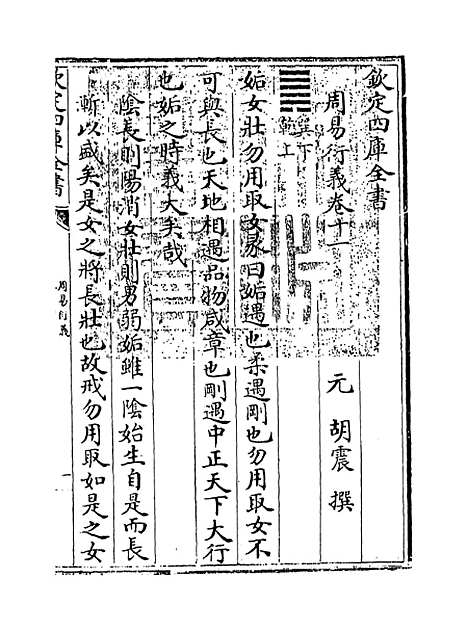 欽定四庫全書
周易衍義卷十一
元 胡震 撰
巽下
乾上
姤女壯勿用取女彖曰姤遇也柔遇剛也勿用取女不
可與長也天地相遇品物咸章也剛遇中正天下大行
也姤之時義大矣哉
陰長則陽消女壯則男弱姤雖一陰始生自是而長
漸以盛矣是女之將長壯也故戒勿用取如是之女
欽定四庫全書
周易衍義
一